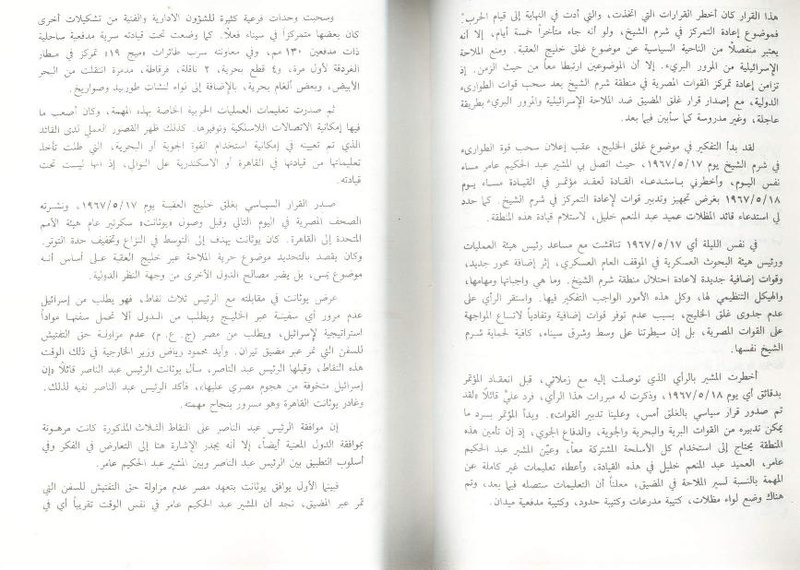 هذا القرار كان أخطر القرارات التي اتخذت، والتي أدت في النهاية إلى قيام الحرب.
فموضوع إعادة التمركز في شرم الشيخ، ولو أنه جاء متأخراً خمسة أيام، إلا أنه
يعتبر منفصلاً من الناحية السياسية عن موضوع غلق خليج العقبة. ومنع الملاحة
الإسرائيلية من المرور البريء. إلا أن الموضوعين ارتبطا معاً من حيث الزمن. إذ
تزامن إعادة تمركز القوات المصرية في منطقة شرم الشيخ بعد سحب قوات الطوارىء
الدولية، مع إصدار قرار غلق المضيق ضد الملاحة الإسرائيلية والمرور البريء بطريقة
عاجلة، وغير مدروسة كما سأبين فيما بعد.
لقد بدأ التفكير في موضوع غلق الخليج، عقب إعلان سحب قوة الطوارىء
في شرم الشيخ يوم ١٩٦٧/٥/١٧، حيث اتصل بي المشير عبد الحكيم عامر مساء
نفس اليوم، وأخطرني باستدعاء القادة لعقد مؤتمر في القيادة مساء يوم
١٩٦٧/٥/١٨ بغرض تجهيز وتدبير قوات لإعادة التمركز في شرم الشيخ. كما حدد
لي استدعاء قائد المظلات عميد عبد المنعم خليل، لاستلام قيادة هذه المنطقة.
في نفس الليلة أي ١٩٦٧/٥/١٧ تناقشت مع مساعد رئيس هيئة العمليات
ورئيس هيئة البحوث العسكرية في الموقف العام العسكري، إثر إضافة محور جديد،
وقوات إضافية جديدة لإعادة احتلال منطقة شرم الشيخ. وما هي واجباتها ومهامها،
والهيكل التنظيمي لها، وكل هذه الأمور الواجب التفكير فيها. واستقر الرأي على
عدم جدوى غلق الخليج، بسبب عدم توفر قوات إضافية وتفادياً لاتساع المواجهة
على القوات المصرية، بل إن سيطرتنا على وسط وشرق سيناء، كافية لحماية شرم
الشيخ نفسها.
أخطرت المشير بالرأي الذي توصلت إليه مع زملائي، قبل انعقاد المؤتمر
بدقائق أي يوم ١٩٦٧/٥/١٨، وذكرت له مبررات هذا الرأي، فرد عليّ قائلاً «لقد
تم صدور قرار سياسي بالغلق أمس، وعلينا تدبير القوات». وبدأ المؤتمر بسرد ما
يمكن تدبيره من القوات البرية والبحرية والجوية، والدفاع الجوي، إذ إن تأمين هذه
المنطقة يحتاج إلى استخدام كل الأسلحة المشتركة معاً، وعيّن المشير عبد الحكيم
عامر، العميد عبد المنعم خليل في هذه القيادة، وأعطاه تعليمات غير كاملة عن
المهمة بالنسبة لسير الملاحة في المضيق، معلناً أن التعليمات ستصله فيما بعد، وتم
هناك وضع لواء مظلات، كتيبة مدرعات وكتيبة حدود، وكتيبة مدفعية ميدان.
وسحبت وحدات فرعية كثيرة للشؤون الادارية والفنية من تشكيلات أخرى
كان بعضها متمركزاً في سيناء فعلاً. كما وضعت تحت قيادته سرية مدفعية ساحلية
ذات مدفعين ١٣٠ مم، وفي معاونته سرب طائرات «ميج ١٩» تمركز في مطار
الغردقة لأول مرة، و٤ قطع بحرية، ٢ ناقلة، فرقاطة، مدمرة انتقلت من البحر
الأبيض، وبعض ألغام بحرية، بالإضافة إلى لواء لنشات طوربيد وصواريخ.
ثم صدرت تعليمات العمليات الحربية الخاصة بهذه المهمة، وكان أصعب ما
فيها إمكانية الاتصالات اللاسلكية وتوفيرها. كذلك ظهر القصور العملي لدى القائد
الذي تم تعيينه في إمكانية استخدام القوة الجوية أو البحرية، التي ظلت تأخذ
تعليماتها من قيادتها في القاهرة أو الاسكندرية على التوالي، إذ انها ليست تحت
قيادته.
صدر القرار السياسي بغلق خليج العقبة يوم ١٩٦٧/٥/١٧، ونشرته
الصحف المصرية في اليوم التالي وقبل وصول «يوثانت» سكرتير عام هيئة الأمم
المتحدة إلى القاهرة. كان يوثانت يهدف إلى التوسط في النزاع وتخفيف حدة التوتر.
وكان يقصد بالتحديد موضوع حرية الملاحة عبر خليج العقبة على أساس أنه
موضوع يمس، بل يضر مصالح الدول الأخرى من وجهة النظر الدولية.
عرض يوثانت في مقابلته مع الرئيس ثلاث نقاط، فهو يطلب من إسرائيل
عدم مرور أي سفينة عبر الخليج ويطلب من الدول ألا تحمل سفنها مواداً
استراتيجية لإسرائيل، ويطلب من مصر (ج. ع. م) عدم مزاولة حق التفتيش
للسفن التي تمر عبر مضيق تيران. وأيد محمود رياض وزير الخارجية في ذلك الوقت
هذه النقاط، وقبلها الرئيس عبد الناصر، سأل يوثانت الرئيس عبد الناصر قائلاً «إن
إسرائيل متخوفة من هجوم مصري عليها»، فأكد الرئيس عبد الناصر نفيه لذلك.
وغادر يوثانت القاهرة وهو مسرور بنجاح مهمته.
إن موافقة الرئيس عبد الناصر على النقاط الثلاث المذكورة كانت مرهونة
بموافقة الدول المعنية أيضاً، إلا أنه يجدر الإشارة هنا إلى التعارض في الفكر وفي
أسلوب التطبيق بين الرئيس عبد الناصر وبين المشير عبد الحكيم عامر.
فبينما الأول يوافق يوثانت بتعهد مصر عدم مزاولة حق التفتيش للسفن التي
تمر عبر المضيق، نجد أن المشير عبد الحكيم عامر في نفس الوقت تقريباً أي في